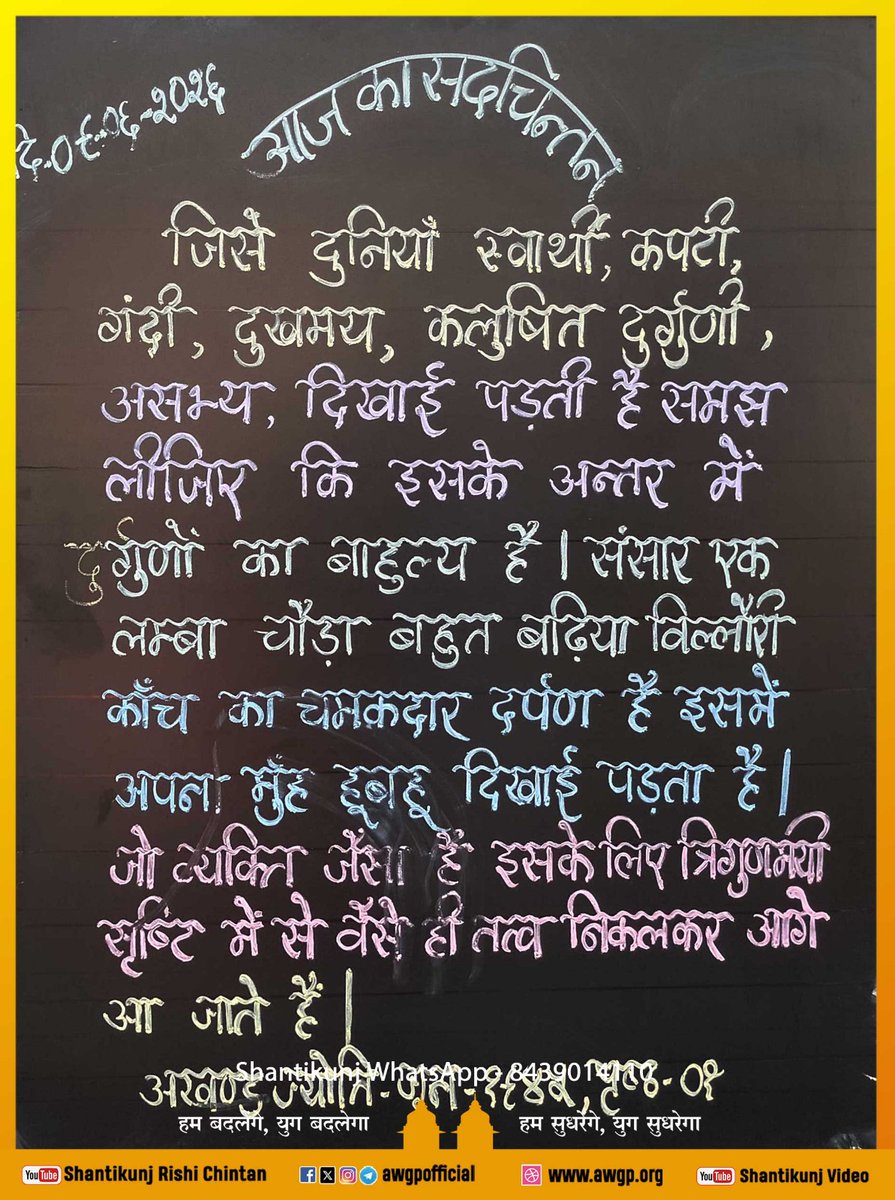 दि.०९.०६-२०२६
आज का सदचिन्तन
जिसे दुनियाँ स्वार्थी, कपटी,
गंदी, दुखमय, कलुषित दुर्गुणी,
असभ्य, दिखाई पड़ती है समझ
लीजिए कि इसके अन्तर में
दुर्गुणों का बाहुल्य है। संसार एक
लम्बा चौड़ा बहुत बढ़िया विल्लौरी
काँच का चमकदार दर्पण है इसमें
अपना मुँह हूबहू दिखाई पड़ता है।
जो व्यक्ति जैसा हैं इसके लिए त्रिगुणमयी
सृष्टि में से वैसे ही तत्व निकलकर आगे
आ जाते हैं।
Shantikunj WhatsApp - 8439014110
अखण्ड ज्योति-जून- पृष्ठ-०१
हम बदलेंगे, युग बदलेगा हम सुधरेंगे, युग सुधरेगा
YouTube Shantikunj Rishi Chintan awgpofficial www.awgp.org YouTube Shantikunj Video